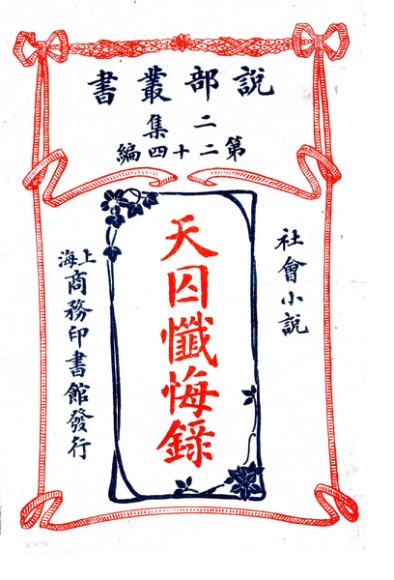 說部叢書
二集
第二十四編
社會小說
天囚懺悔錄
上海
商務印書館發行